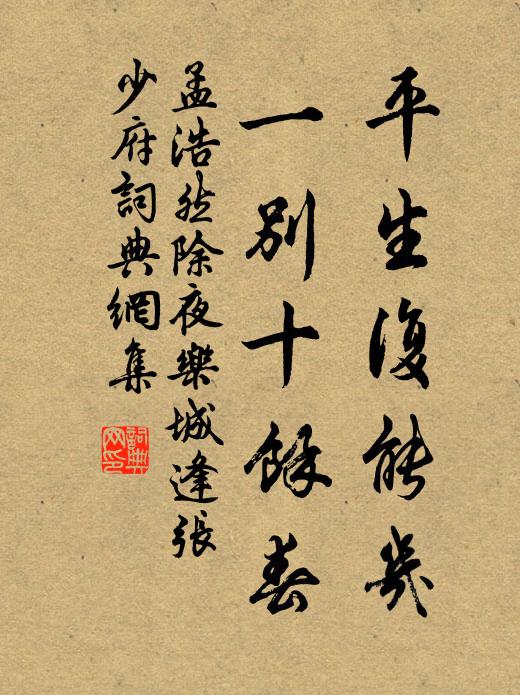 平生復能幾
一別十餘春
孟浩然除夜樂城逢張
少府詞典網集
詞典
网印